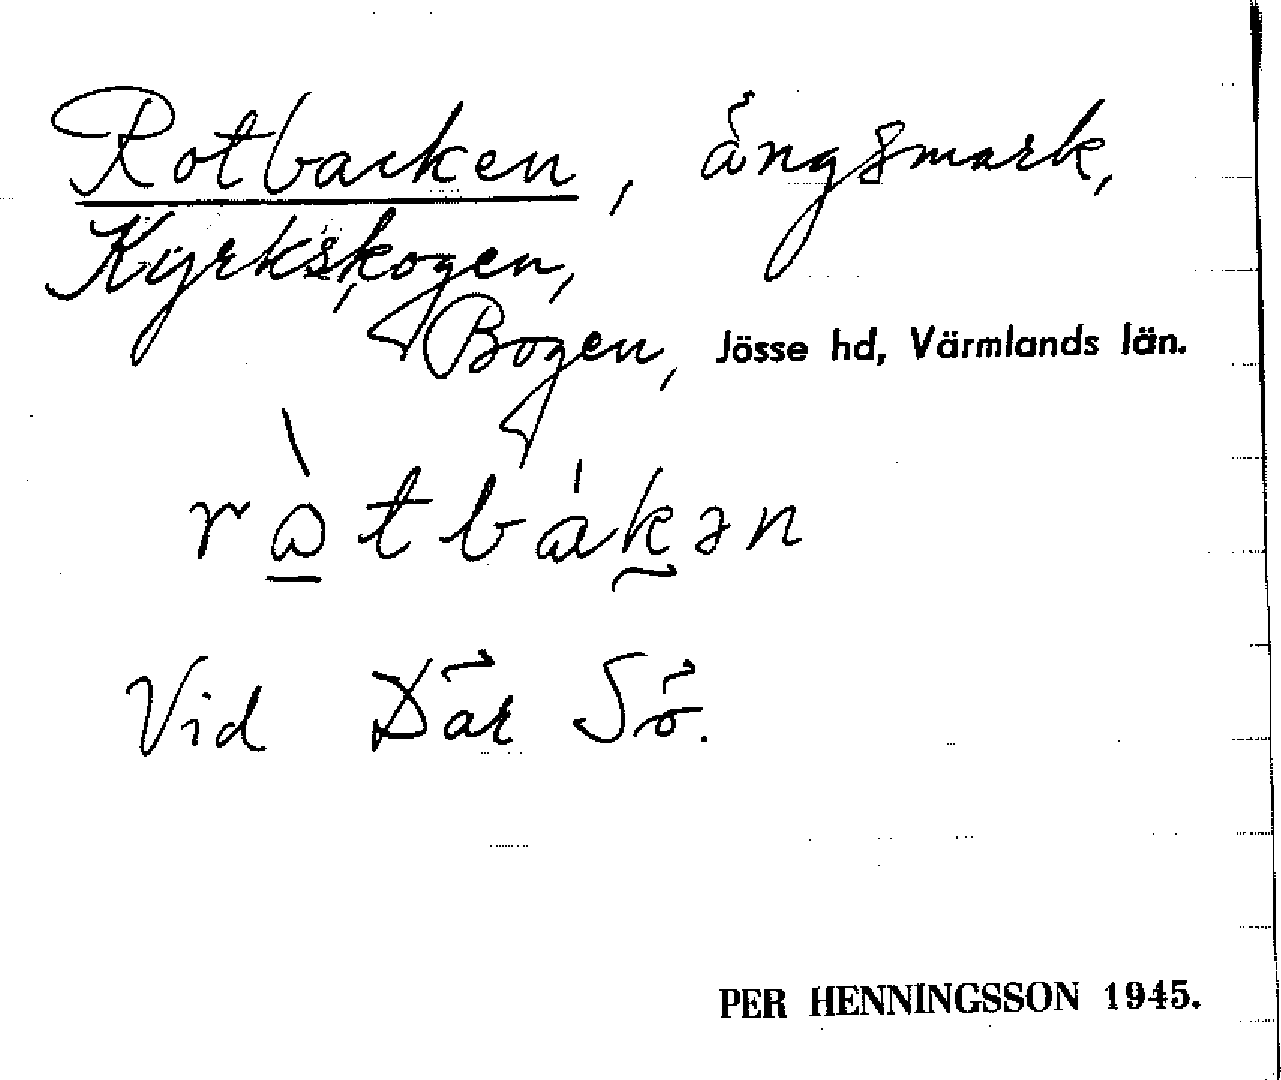 Rotbacken, ängsmark,
Kyrkskogen,
Bogen, Jösse hd, Värmlands län.
ròtbákən
Vid Där Sö.
PER HENNINGSSON 1945.